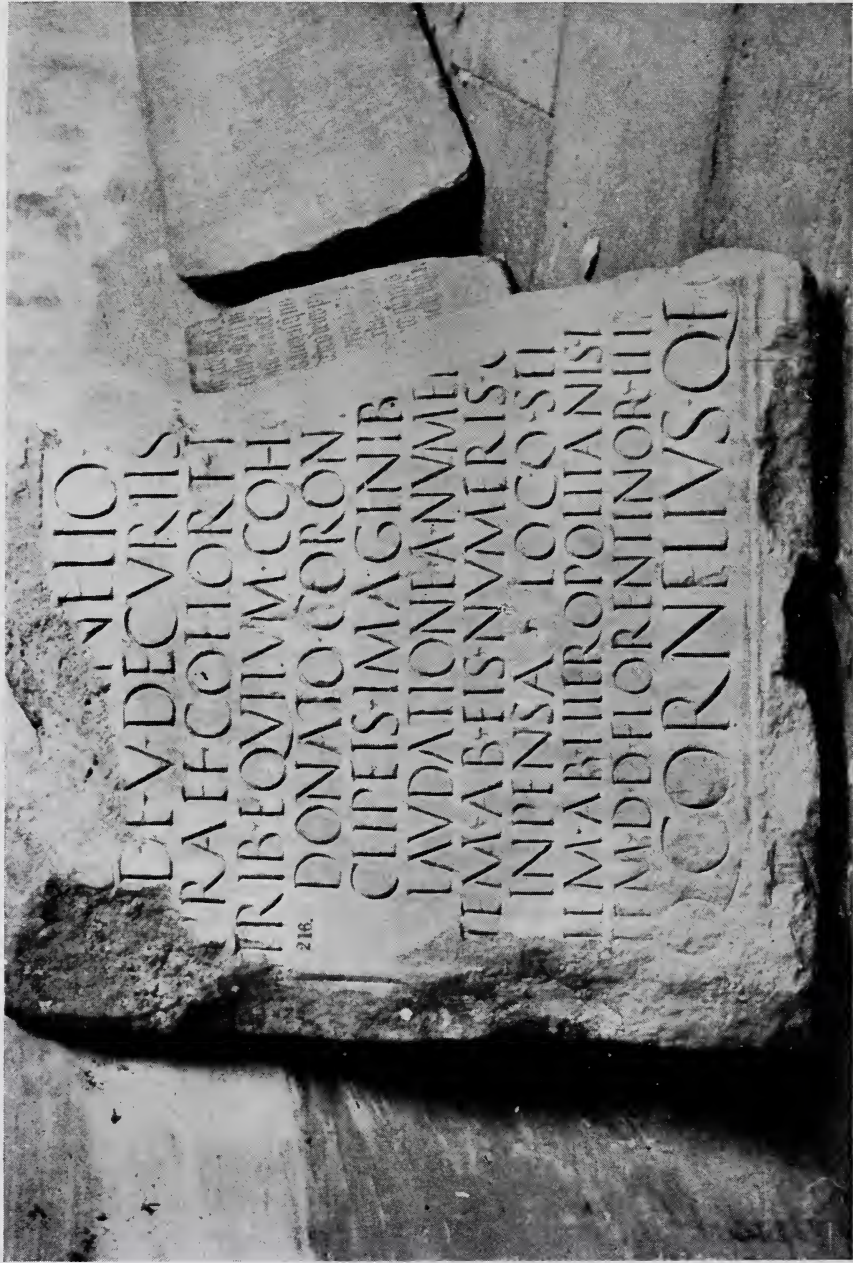 NELIO
DE·V·DECVRIIS
RAEF·COHORT·I
TRIB·EQVITVM·COH
216.
DONATO·CORON
CLIPEIS·IMAGINIB
LAVDATIONE·A·NVMEI
TEM·AB·EIS·NVMERIS·
INPENSA·LOCO·SEI
TEM·AB·HIEROPOLITANIS·I
TEM·D·D·FLORENTINOR·III
CORNELIVS·Q·F